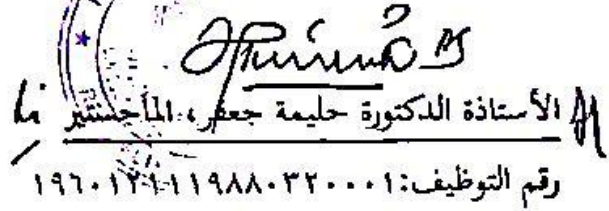 الأستاذة الدكتورة حليمة جعفر، الماجستير
رقم التوظيف: ١٩٦٠١٢١١١٩٨٨٠٣٢٠٠٠١